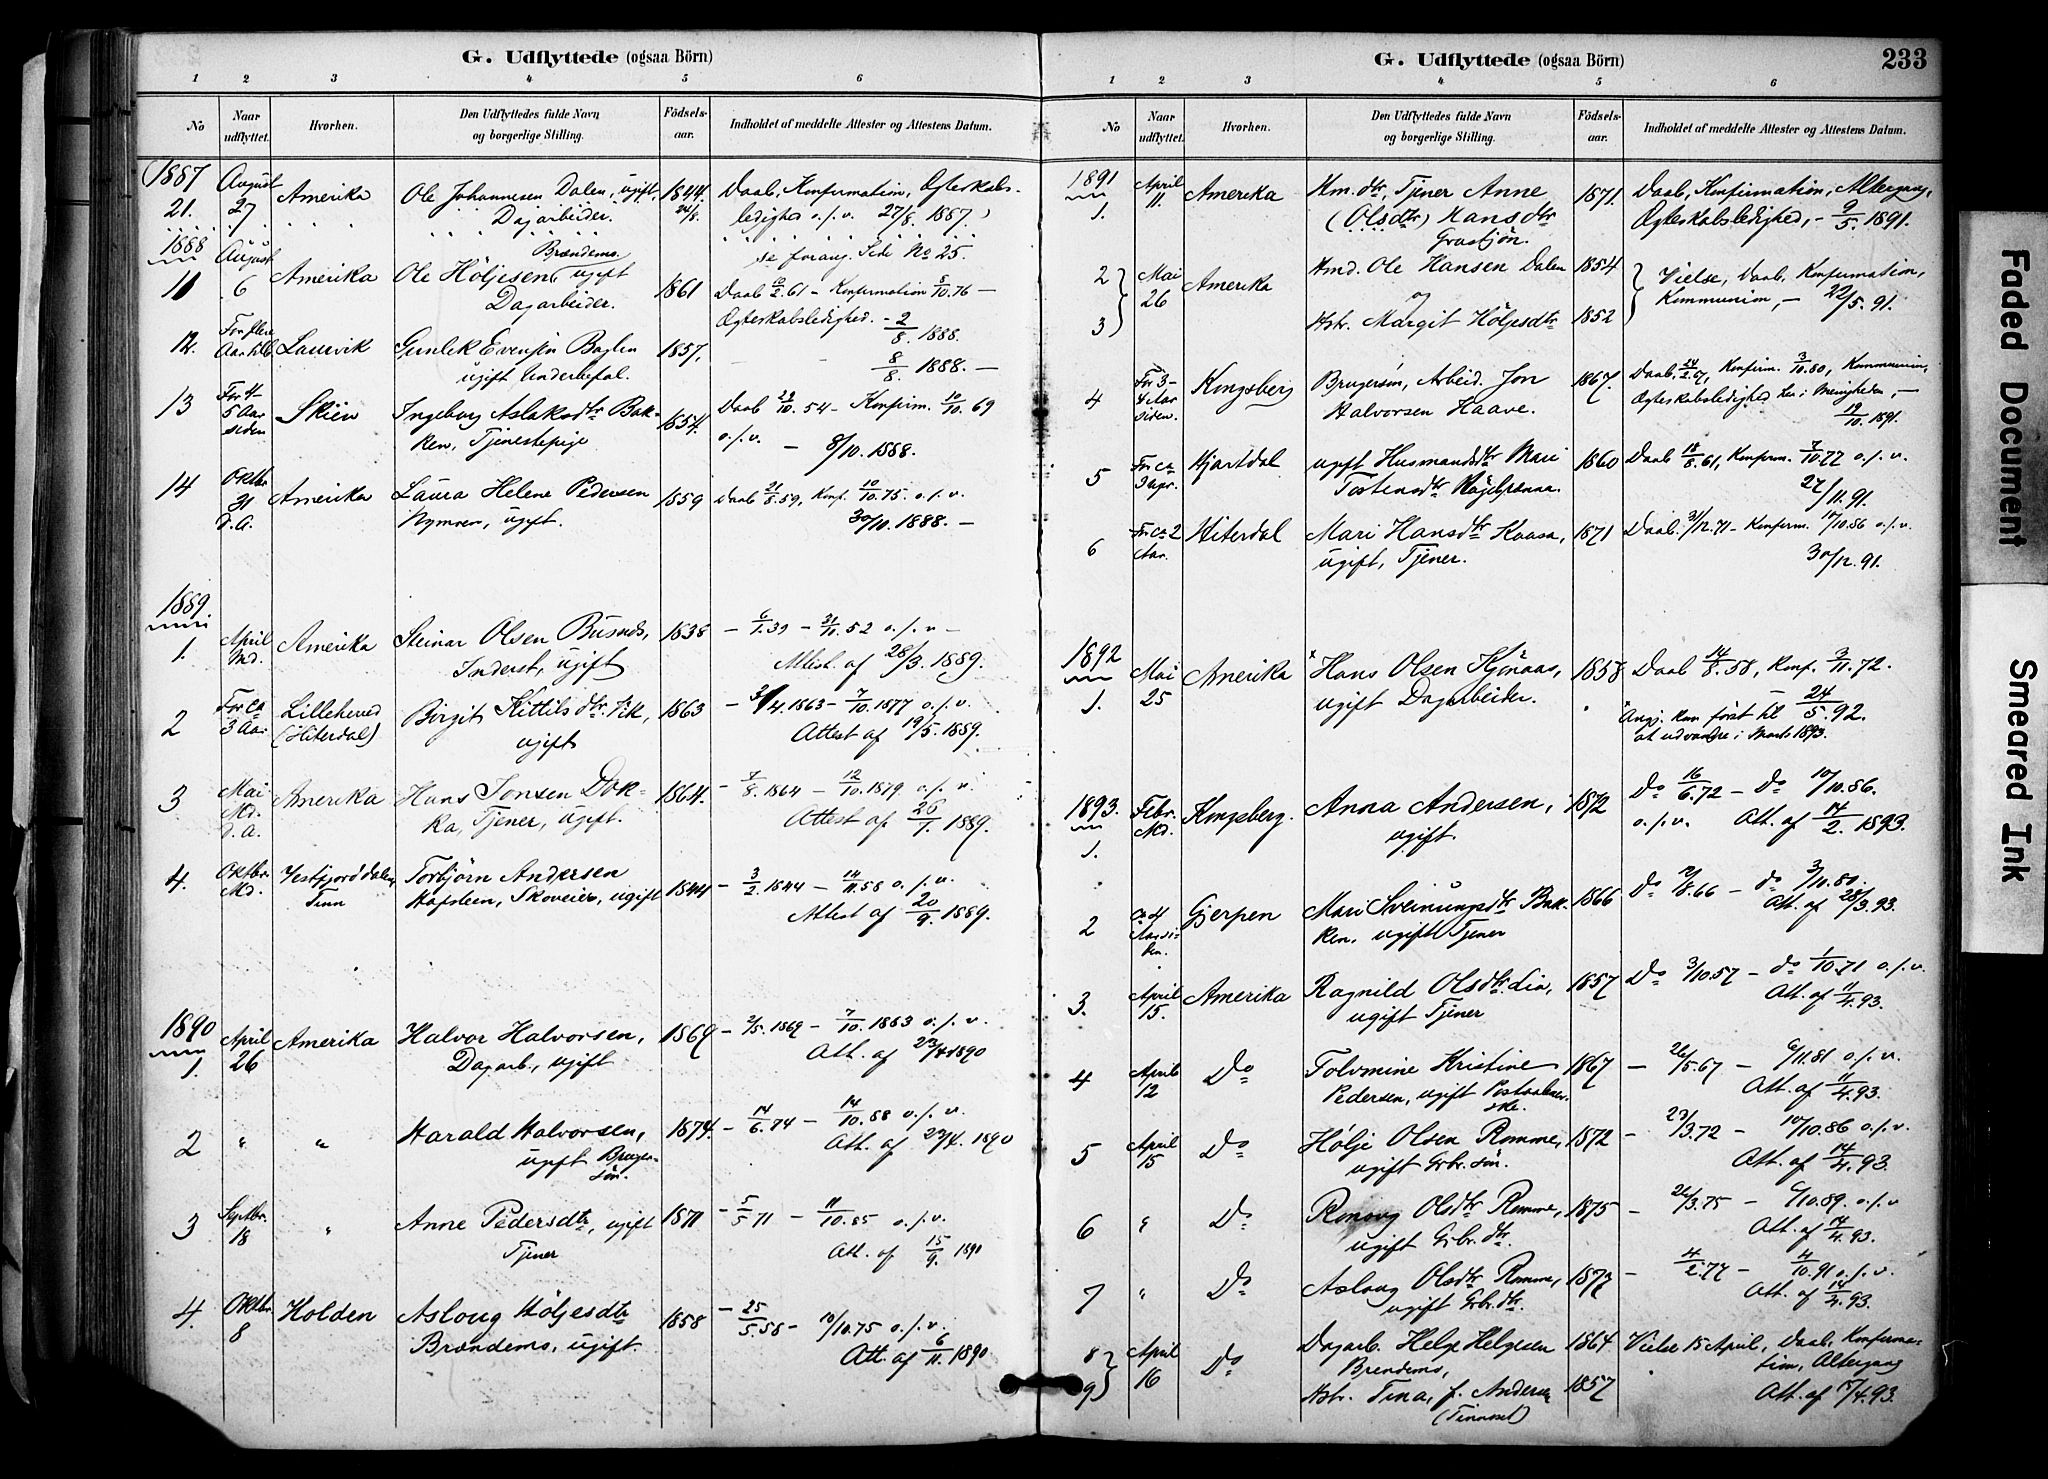 G. Udflyttede (ogsaa Börn)
1 2 3 4 5 6
No Naar udflyttet. Hvorhen. Den Udflyttedes fulde Navn og borgerlige Stilling. Födsels-aar. Indholdet af meddelte Attester og Attestens Datum.
1887 August Amerika Ole Johannesen Dalen, ugift, 1844. Daab, Konfirmation, Ægteskabs-
21. 27 Dagarbeider. 24/8. ledighed o.s.v. 27/8. 1887.
1888 August Brændemo se forang. Side No 25.
11 6 Amerika Ole Höljesen, ugift 1861 Daab 10/2.61 – Konfirmation 5/10.76 –
Dagarbeider. Ægteskabsledighed. – 2/8 1888.
12. For flere Aar tilb. Laurvik Gunlek Evensen Bøglin 1857,
ugift Underbefal. 8/8. 1888. –
13 For 4- Skien Ingeborg Aslaksdtr Bak- 1854. Daab 29/10.54 – Konfirm. 10/10 69
5 Aar siden ken, Tjenestepige o.s.v. – 8/10. 1888.
14 Oktbr Amerika Laura Helene Pedersen 1859 Daab 21/8.59, Konf. 10/10.75. o.s.v.
31 d.A. Nymoen, ugift. 30/10. 1888. –
1889.
1. April Md. Amerika Steinar Olsen Busnes, 1838 – 6/1.39 – 31/11.52 o.s.v –
Inderst, ugift Attest. af 28/3. 1889.
2 For ca Lilleherred Birgit Kittilsdtr. Vik, 1863 – 3/4.1863 – 7/10.1877 o.s.v.
3 Aar (Hiterdal) ugift Attest af 19/5. 1889.
3 Mai Amerika Hans Jonsen Dok- 1864. – 7/8.1864 – 12/10.1879 o.s.v.
Md. d.A. ka, Tjener, ugift. Attest af 26/7. 1889.
4. Oktbr. Vestfjorddalen, Torbjörn Andersen 1844 – 3/2.1844 – 14/11.58 o.s.v.
Md. Tinn Hafsteen, Skoveier, ugift Attest af 20/9. 1889.
1890 April Amerika Halvor Halvorsen, 1869 – 2/5.1869 – 7/10.1883 o.s.v.
1. 26 Dagarb., ugift Att. af 23/4 1890
2 " " Harald Halvorsen, 1874. – 14/6.74 – 14/10.88 o.s.v.
ugift Bruger- Att. af 23/4. 1890
sön.
3 Septbr. " Anne Pedersdtr, ugift 1871 – 5/5.71 – 11/10.85 o.s.v.
18 Tjener Att. af 15/9. 1890
4. Oktbr. Holden Asloug Höljesdtr 1858 – 25/5.58 – 10/10.75 o.s.v.
8 Brændemo, ugift. Att. af 6/11. 1890
G. Udflyttede (ogsaa Börn) 233
1 2 3 4 5 6
No Naar udflyttet. Hvorhen. Den Udflyttedes fulde Navn og borgerlige Stilling. Födsels-aar. Indholdet af meddelte Attester og Attestens Datum.
1891 April Amerika Hm. dtr, Tjener Anne 1871. Daab, Konfirmation, Altergang,
1. 11. (Olsdtr) Hansdtr Ægteskabsledighed, – 9/5. 1891.
Grastjön.
2 Mai Amerika Hmd. Ole Hansen Dalen 1854 Vielse, Daab, Konfirmation,
26 og Kommunion, – 22/5. 91.
3 Hstr. Margit Höljesdtr 1852
4 For 3- Kongsberg Brugersøn, Arbeid. Jon 1867. Daab. 24/2.67, Konfirm. 3/10.80, Kommunion,
4 Aar siden. Halvorsen Haave. Ægteskabsledighed her i Menigheden, –
19/10. 1891.
5 For ca Hjartdal ugift Husmandsdtr Mari 1860 Daab 18/8.61, Konfirm. 7/10.77 o.s.v.
Tostensdtr 27/11.91.
6 For ca 2 Hiterdal Mari Hansdtr Kaasa, 1871 Daab. 31/12.71 – Konfirm. 17/10.86 o.s.v.
Aar. ugift, Tjener. 30/12. 91.
1892 Mai Amerika x Hans Olsen Kjönaas, 1858 Daab 14/8.58, Konf. 3/11.72.
1. 25 ugift Dagarbeider. – 24/5. 92.
x Angj. kom först til
at udvandre i Marts 1893.
1893. Febr. Kongsberg. Anna Andersen, 1872 Do 16/6.72 – Do 10/10.86.
1. Md. ugift. o.s.v. Att. af 14/2. 1893.
2 ca 4 Gjerpen Mari Sveinungsdtr Bak- 1866 Do 12/8.66 – do 3/10.80.
Aar si-den. ken, ugift Tjener Att. af 28/3.93.
3. April Amerika Ragnild Olsdtr Lia, 1857 Do 3/10.57 – do 1/10.71 o.s.v.
15. ugift Tjener Att. af 11/4.93.
4 April Do Tolvmine Kristine 1867 – 26/5.67 – 6/11.81 o.s.v.
12 Pedersen, ugift Postaabner- Att. af 11/4.93.
ske.
5 April Do Hölje Olsen Romme, 1872 – 23/3.72 – 10/10.86 o.s.v.
15 ugift Grbr. sön. Att. af 14/4.93.
6 " Do Ronoug Olsdtr Romme, 1875 – 26/3.75 – 6/10.89. o.s.v
ugift Grbr. dtr. Att. af 14/4.93.
7 " Do Asloug Olsdtr Romme, 1877 – 4/2.77 – 4/10.91 o.s.v.
ugift Grbr. dtr. Att. af 14/4.93.
8 April Do Dagarb. Helge Helgesen 1864 Vielse 15 April, Daab, Konfirma-
16 Brendemo, tion, Altergang
9 Hstr. Tina, f. Andersen 1857 Att. af 15/4.93.
(Tinnoset)
Faded Document
Smeared Ink